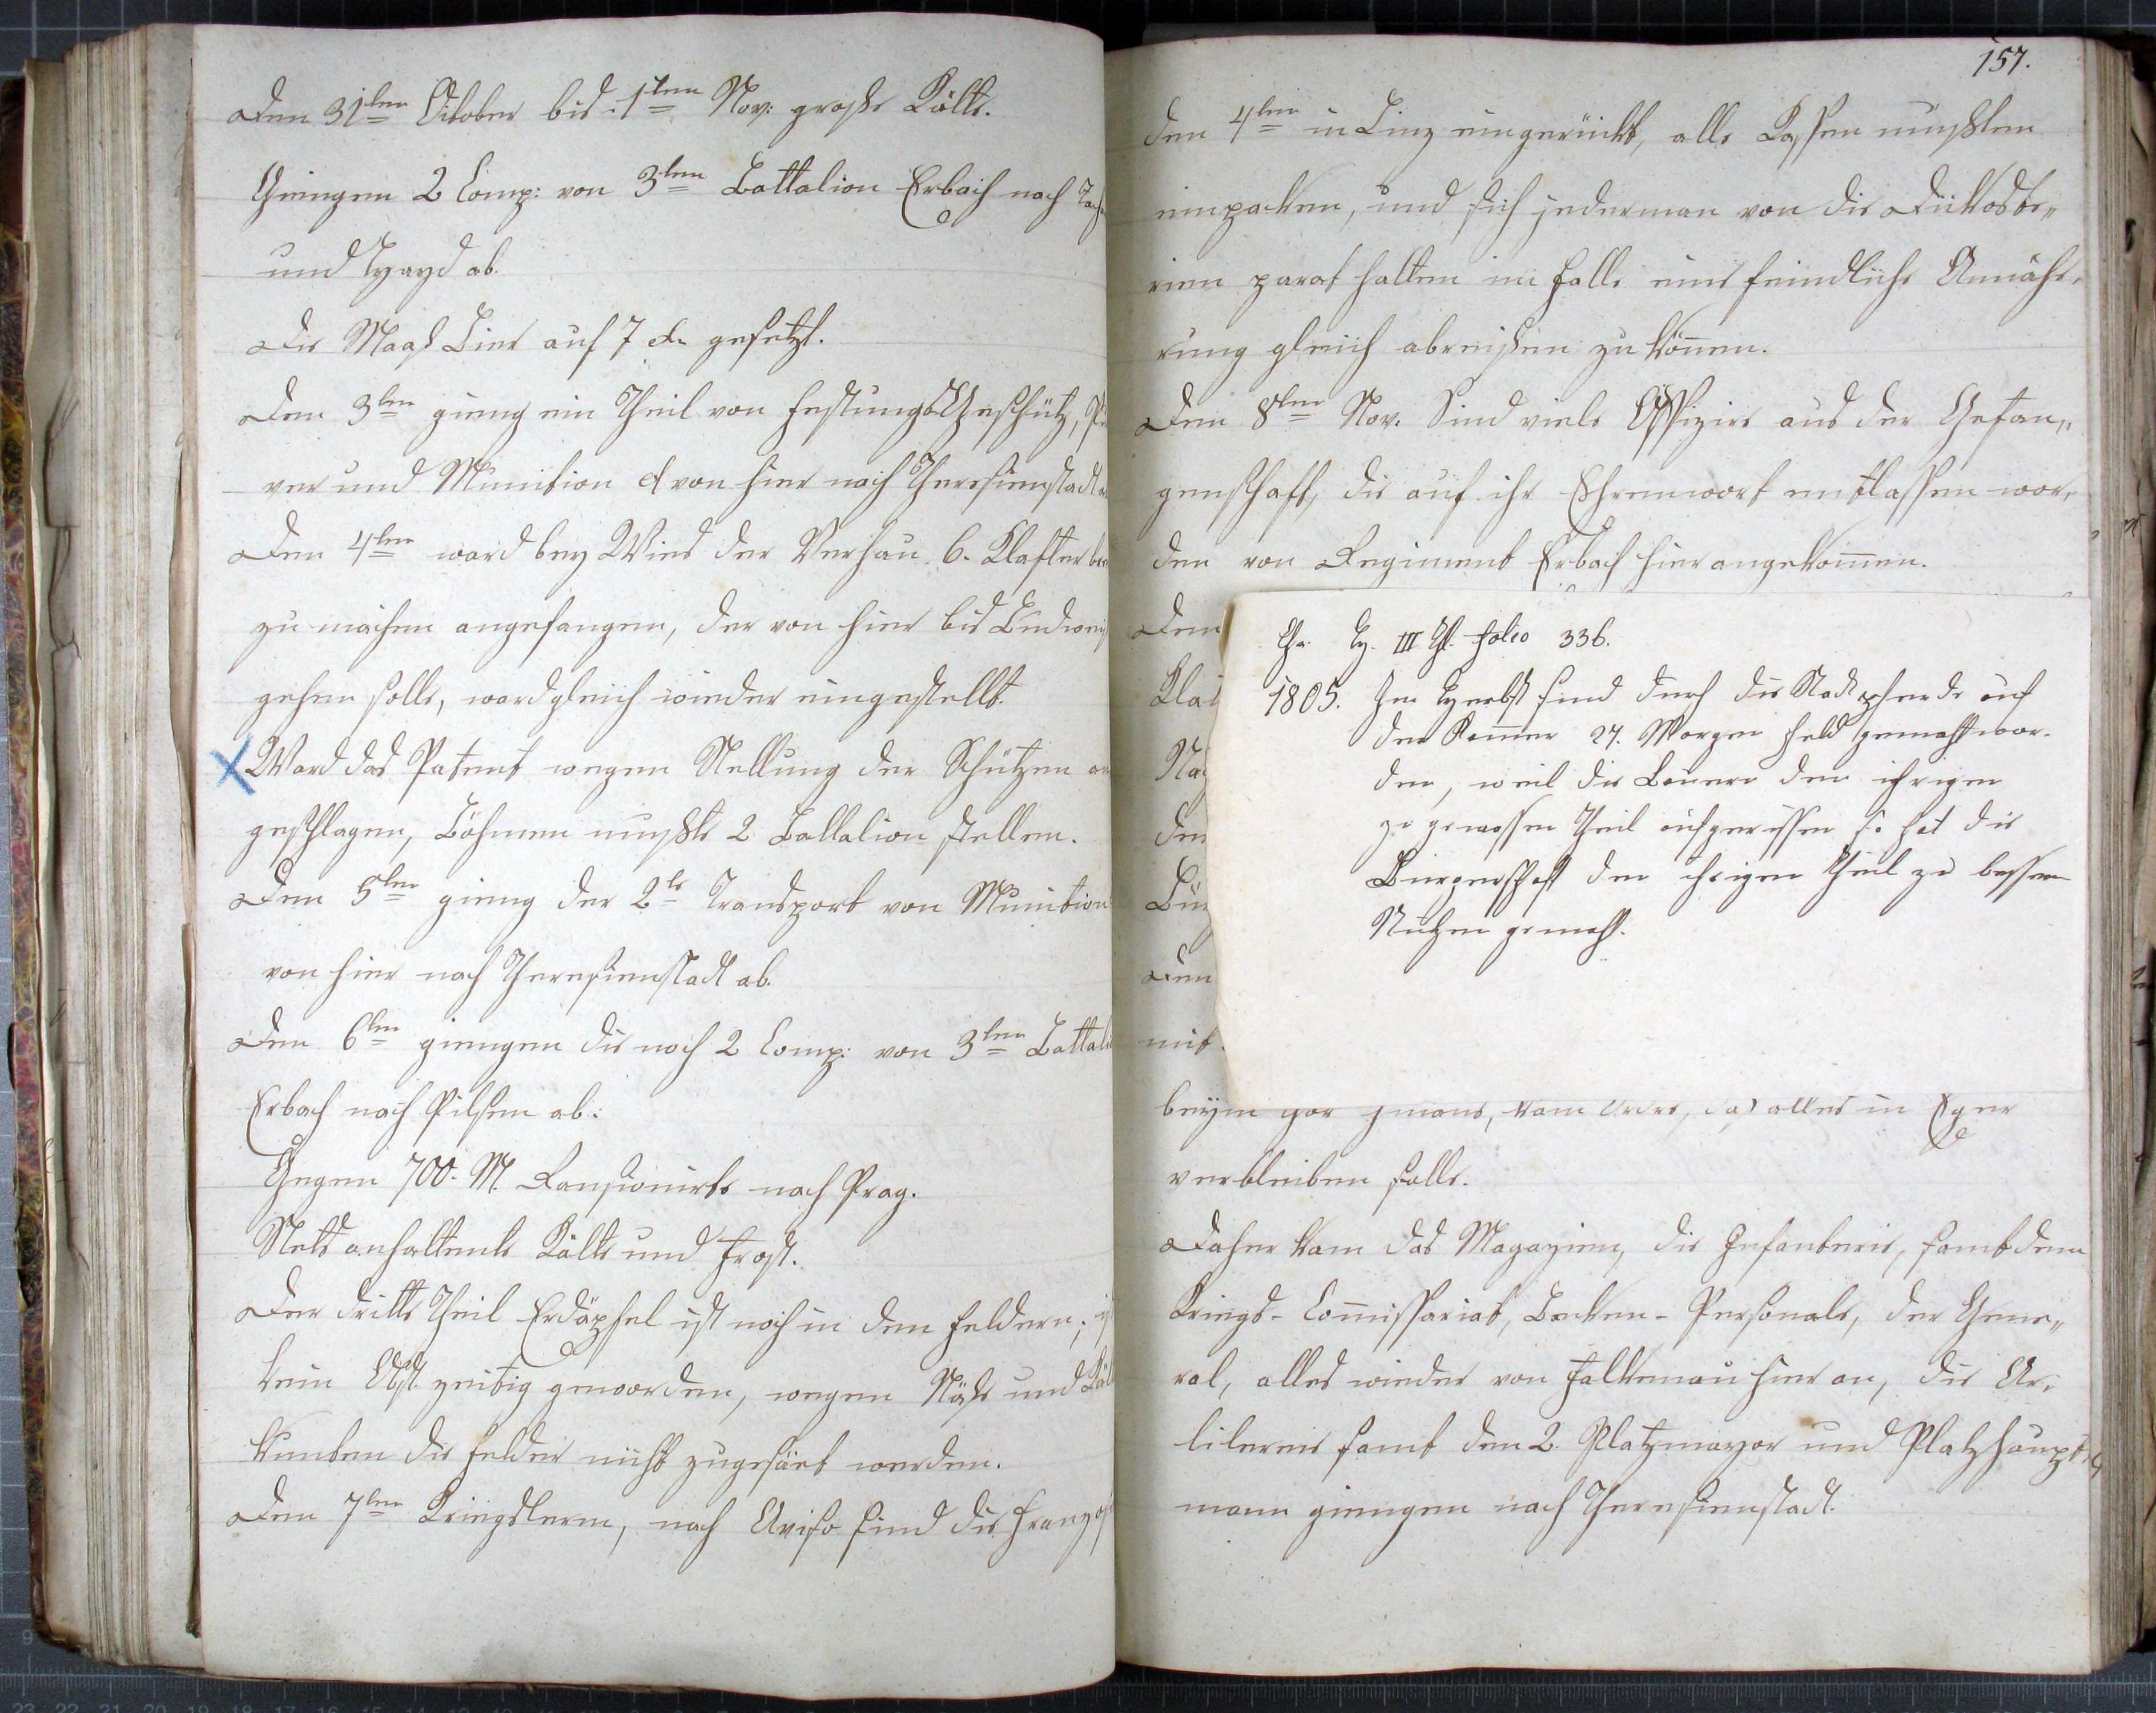 Den 31ten October bis 1ten Nov: große Kälte.
Giengen 2 Comp: von 3ten Battalion Erbach nach
und Hayd ab.
Die Maaß Bier auf 7 x. gesetzt.
Den 3ten gieng ein Theil von Festungs Geschütz,
ver und Munition von hier nach Theresienstadt
Den 4ten ward bey Wies der Verhau 6. Klafter
zu machen angefangen, der von hier bis
gehen solle, ward gleich wieder eingestellt.
Ward das Patent wegen Stellung der Schützen
geschlagen, Böhmen mußte 2 Battalion stellen.
Den 5ten gieng der 2te Transport von Munition
von hier nach Theresienstadt ab.
Den 6ten giengen die noch 2 Comp: von 3ten
Erbach nach Pilsen ab.
Gegen 700. M. Ransionirte nach Prag.
Stets anhaltente Kälte und Frost.
Der dritte Theil Erdäpfel ist noch in den Feldern;
kein Obst zeitig geworden, wegen Näße und
kunten die Felder nicht zugesäet werden.
Den 7ten Kriegslerm, nach Aviso sind die
157.
den 4ten in Linz eingerückt, alle Kassen mußten
einpacken, und sich jederman von die Dickaste„
rien parat halten im Falle eine feindliche Annähe„
rung gleich abreisen zu können.
Den 8ten Nov. Sind viele Offizire aus der Gefan„
genschaft, die auf ihr Ehrenwort entlassen wor„
den von Regiment Erbach hier angekommen.
Den
Kla
den
Den
mit
III Th. folio 336.
1805. Im Herbst sind durch die Stadtpferde auf
der Kammer 27. Morgen Feld gemacht wor„
den, weil die Bauern den ihrigen
zugemessen Theil aufgerissen so hat die
Burgerschaft den ihrigen Theil zu bessern
Nutzen gemacht.
kam Ordre, daß alles in Eger
verbleiben solle.
Daher kam das Magazien, die Infanterie, sambt dem
Kriegs-Commissariat, Becken-Personale, der Gene„
ral, alles wieder von Falkenau hier an, die Ar„
tilerie samt den 2. Platzmayor und Platzhaupt„
mann giengen nach Theresienstadt.